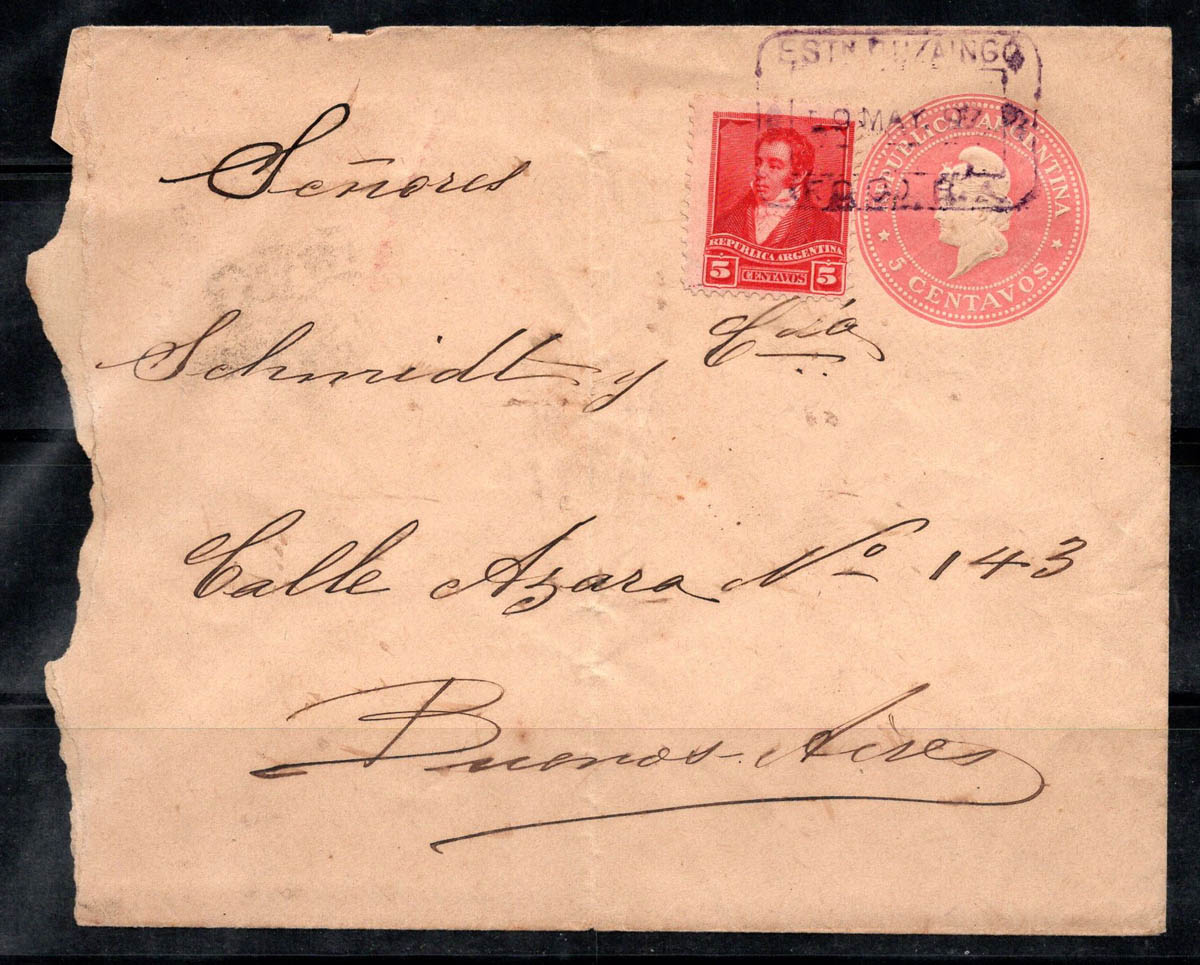 9 MAY. 97
REPUBLICA ARGENTINA
5 CENTAVOS 5
REPUBLICA ARGENTINA
5 CENTAVOS
Señores
Schmidt y Cía
Calle Azara No 143
Buenos Aires